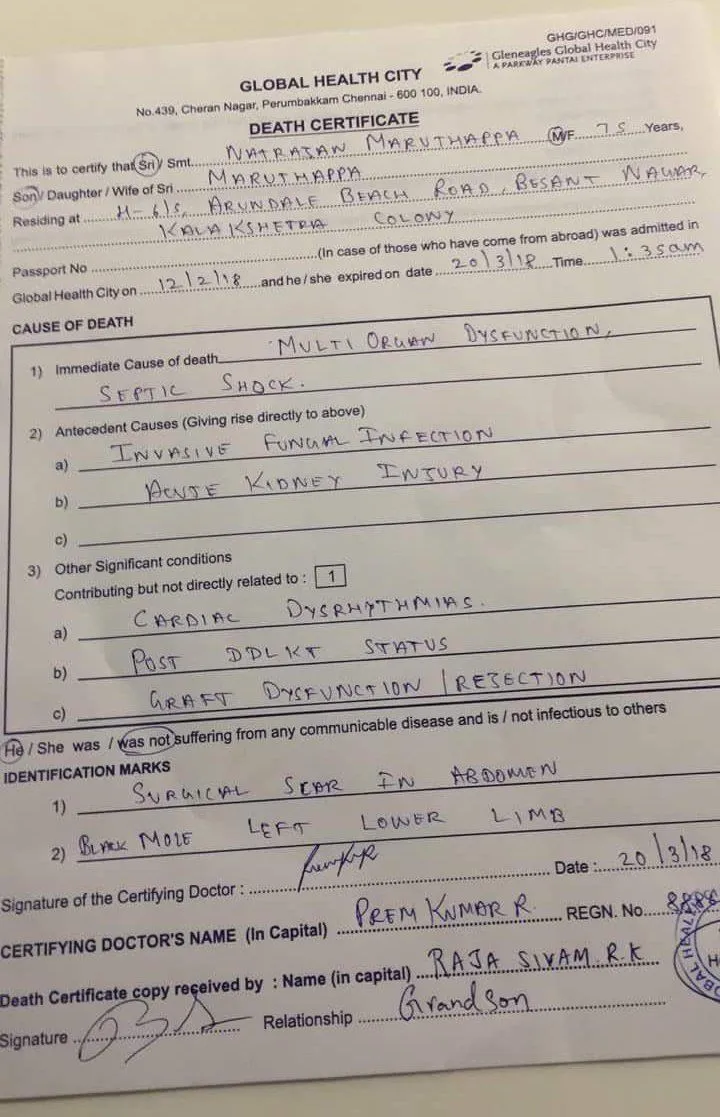 GHG/GHC/MED/091
Gleneagles Global Health City
A PARKWAY PANTAI ENTERPRISE
GLOBAL HEALTH CITY
No.439, Cheran Nagar, Perumbakkam Chennai - 600 100, INDIA.
DEATH CERTIFICATE
This is to certify that Sri / Smt. NATRAJAN MARUTHAPPA M/F 75 Years,
Son / Daughter / Wife of Sri MARUTHAPPA
Residing at H-6/5, ARUNDALE BEACH ROAD, BESANT NAGAR,
KALAKSHETRA COLONY
Passport No (In case of those who have come from abroad) was admitted in
Global Health City on 12/2/18 and he / she expired on date 20/3/18 Time 1:35am
CAUSE OF DEATH
1) Immediate Cause of death MULTI ORGAN DYSFUNCTION,
SEPTIC SHOCK.
2) Antecedent Causes (Giving rise directly to above)
a) INVASIVE FUNGAL INFECTION
b) ACUTE KIDNEY INJURY
c)
3) Other Significant conditions
Contributing but not directly related to : 1
a) CARDIAC DYSRHYTHMIAS.
b) POST DDLKT STATUS
c) GRAFT DYSFUNCTION / REJECTION
He / She was / was not suffering from any communicable disease and is / not infectious to others
IDENTIFICATION MARKS
1) SURGICAL SCAR IN ABDOMEN
2) BLACK MOLE LEFT LOWER LIMB
Signature of the Certifying Doctor : Date : 20/3/18
CERTIFYING DOCTOR'S NAME (In Capital) PREM KUMAR R. REGN. No.
Death Certificate copy received by : Name (in capital) RAJA SIVAM.R.K
Signature Relationship Grandson